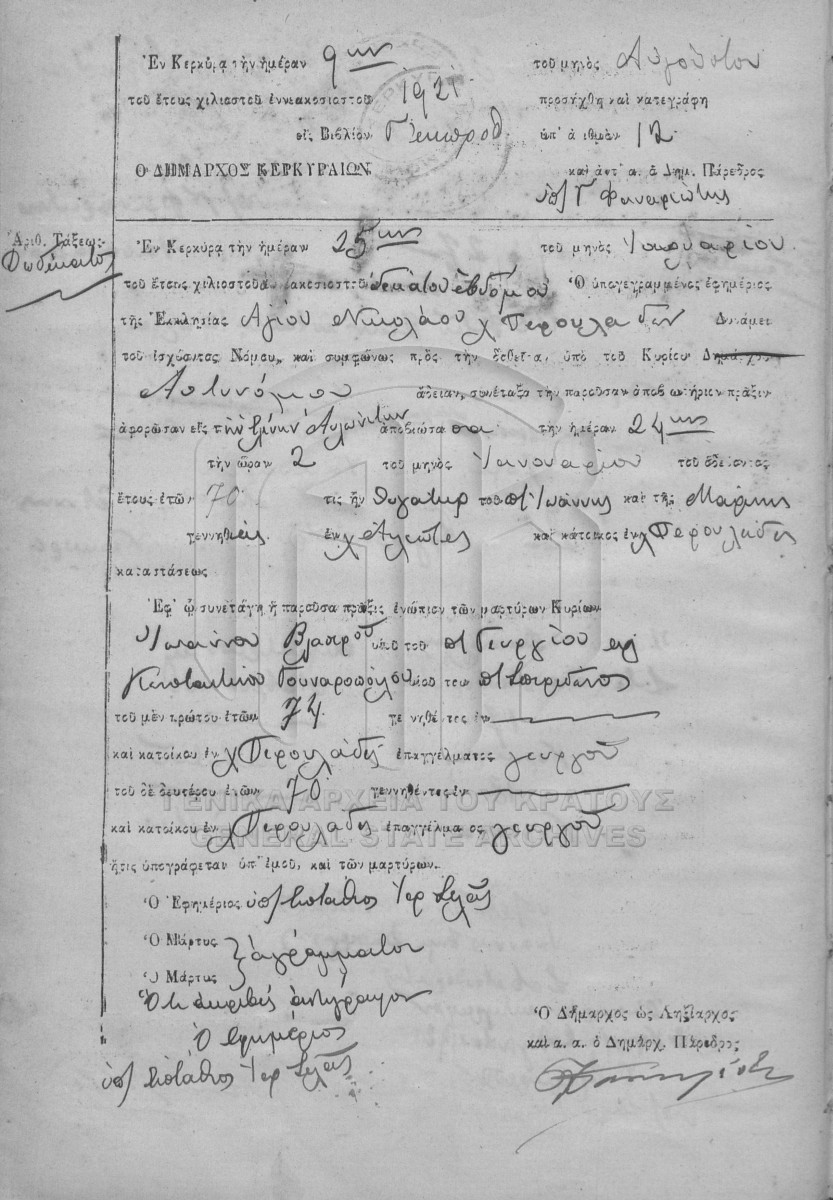 Ἐν Κερκύρᾳ τὴν ἡμέραν 9ην τοῦ μηνὸς Αὐγούστου
τοῦ ἔτους χιλιοστοῦ ἐννεακοσιοστοῦ 1921 προσήχθη καὶ κατεγράφη
εἰς Βιβλίον ὑπ' ἀριθμὸν 12
Ο ΔΗΜΑΡΧΟΣ ΚΕΡΚΥΡΑΙΩΝ καὶ ἀντ' α. ὁ Δημ. Πάρεδρος
ὑπ/ Γ Φαναριώτης
Ἀριθ. Τάξεως
Δωδέκατος
Ἐν Κερκύρᾳ τὴν ἡμέραν 25ην τοῦ μηνὸς Ἰανουαρίου
τοῦ ἔτους χιλιοστοῦ ἐννεακοσιοστοῦ δεκάτου ἑβδόμου Ὁ ὑπογεγραμμένος ἐφημέριος
τῆς Ἐκκλησίας Ἁγίου Νικολάου χ Περουλάδων Δυνάμει
τοῦ ἰσχύοντος Νόμου, καὶ συμφώνως πρὸς τὴν δοθεῖσα, ὑπὸ τοῦ Κυρίου Δημάρχου
Ἀστυνόμου ἄδειαν, συνέταξα τὴν παροῦσαν ἀποβιωτήριον πρᾶξιν
ἀφορῶσαν εἰς τὴν Αὐλωνίτην ἀποβιώσασα τὴν ἡμέραν 24ην
τὴν ὥραν 2 τοῦ μηνὸς Ἰανουαρίου τοῦ ὁδεύοντος
ἔτους ἐτῶν 70 τις ἦν θυγάτηρ τοῦ π/ Ἰωάννης καὶ τῆς Μαρίης
γεννηθεὶς ἐν χ καὶ κάτοικος ἐν χ Περουλάδες
καταστάσεως
Ἐφ' ᾧ συνετάγη ἡ παροῦσα πρᾶξις ἐνώπιον τῶν μαρτύρων Κυρίων
Ἰωάννου Βλασεροῦ υἱοῦ τοῦ π/ Γεωργίου καὶ
Κωνσταντίνου Γουναροπούλου υἱοῦ τοῦ π/ Σπυρίδωνος
τοῦ μὲν πρώτου ἐτῶν 74 γεννηθέντες ἐν
καὶ κατοίκου ἐν χ Περουλάδες ἐπαγγέλματος γεωργοῦ
τοῦ δὲ δευτέρου ἐτῶν 70 γεννηθέντες ἐν
καὶ κατοίκου ἐν χ Περουλάδες ἐπαγγέλματος γεωργοῦ
ἥτις ὑπογράφεται ὑπ' ἐμοῦ, καὶ τῶν μαρτύρων.
Ὁ Ἐφημέριος ὑπ/ Εὐστάθιος Ἱερ
Ὁ Μάρτυς
Ὁ Μάρτυς } ἀγράμματοι
Ὅτι ἀκριβὲς ἀντίγραφον
Ὁ ἐφημέριος
ὑπ/ Εὐστάθιος Ἱερ
Ὁ Δήμαρχος ὡς Ληξίαρχος
καὶ α. α. ὁ Δημαρχ. Πάρεδρος
ΓΕΝΙΚΑ ΑΡΧΕΙΑ ΤΟΥ ΚΡΑΤΟΥΣ
GENERAL STATE ARCHIVES